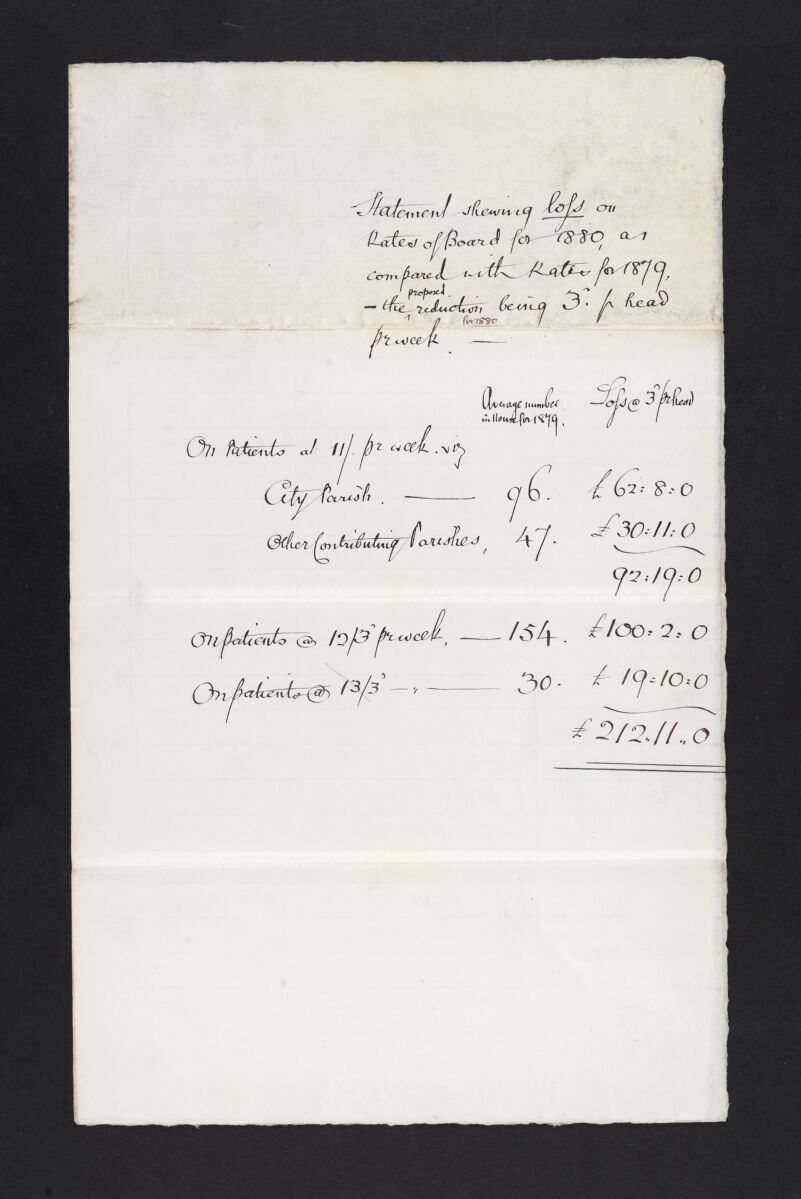 Statement shewing loss on
Rates of Board for 1880, as
compared with Rates for 1879,
– the proposed reduction for 1880 being 3d. p head
pr week. —
Average number
in House for 1879.
Loss @ 3d pr head
On Patients at 11/. pr week. viz
City Parish. — 96. £62:8:0
Other Contributing Parishes, 47. £30:11:0
92:19:0
On patients @ 12/3d pr week. — 154. £100:2:0
On patients @ 13/3d — " — 30. £19:10:0
£212"11"0